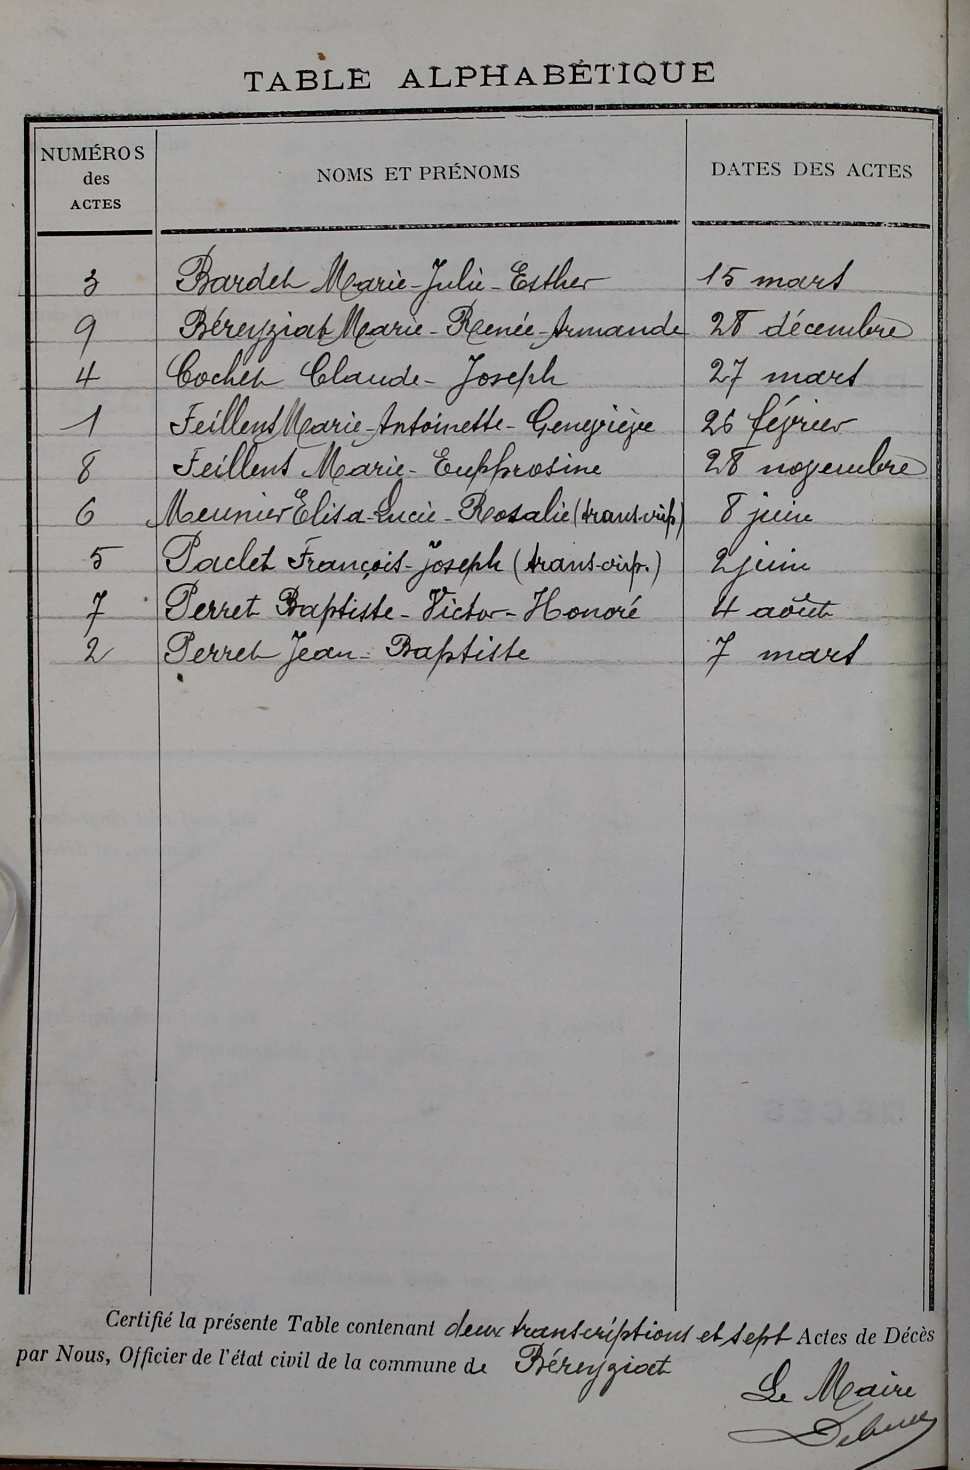 TABLE ALPHABÉTIQUE
NUMÉROS des ACTES NOMS ET PRÉNOMS DATES DES ACTES
3 Bardet Marie-Julie-Esther 15 mars
9 Béreyziat Marie-Renée-Armande 28 décembre
4 Cochet Claude-Joseph 27 mars
1 Feillens Marie-Antoinette-Geneviève 26 février
8 Feillens Marie-Euphrosine 28 novembre
6 Meunier Elisa-Lucie-Rosalie (transcrip) 8 juin
5 Paclet François-Joseph (transcrip.) 2 juin
7 Perret Baptiste-Victor-Honoré 4 août
2 Perret Jean-Baptiste 7 mars
Certifié la présente Table contenant deux transcriptions et sept Actes de Décès
par Nous, Officier de l'état civil de la commune de Béreyziat
Le Maire